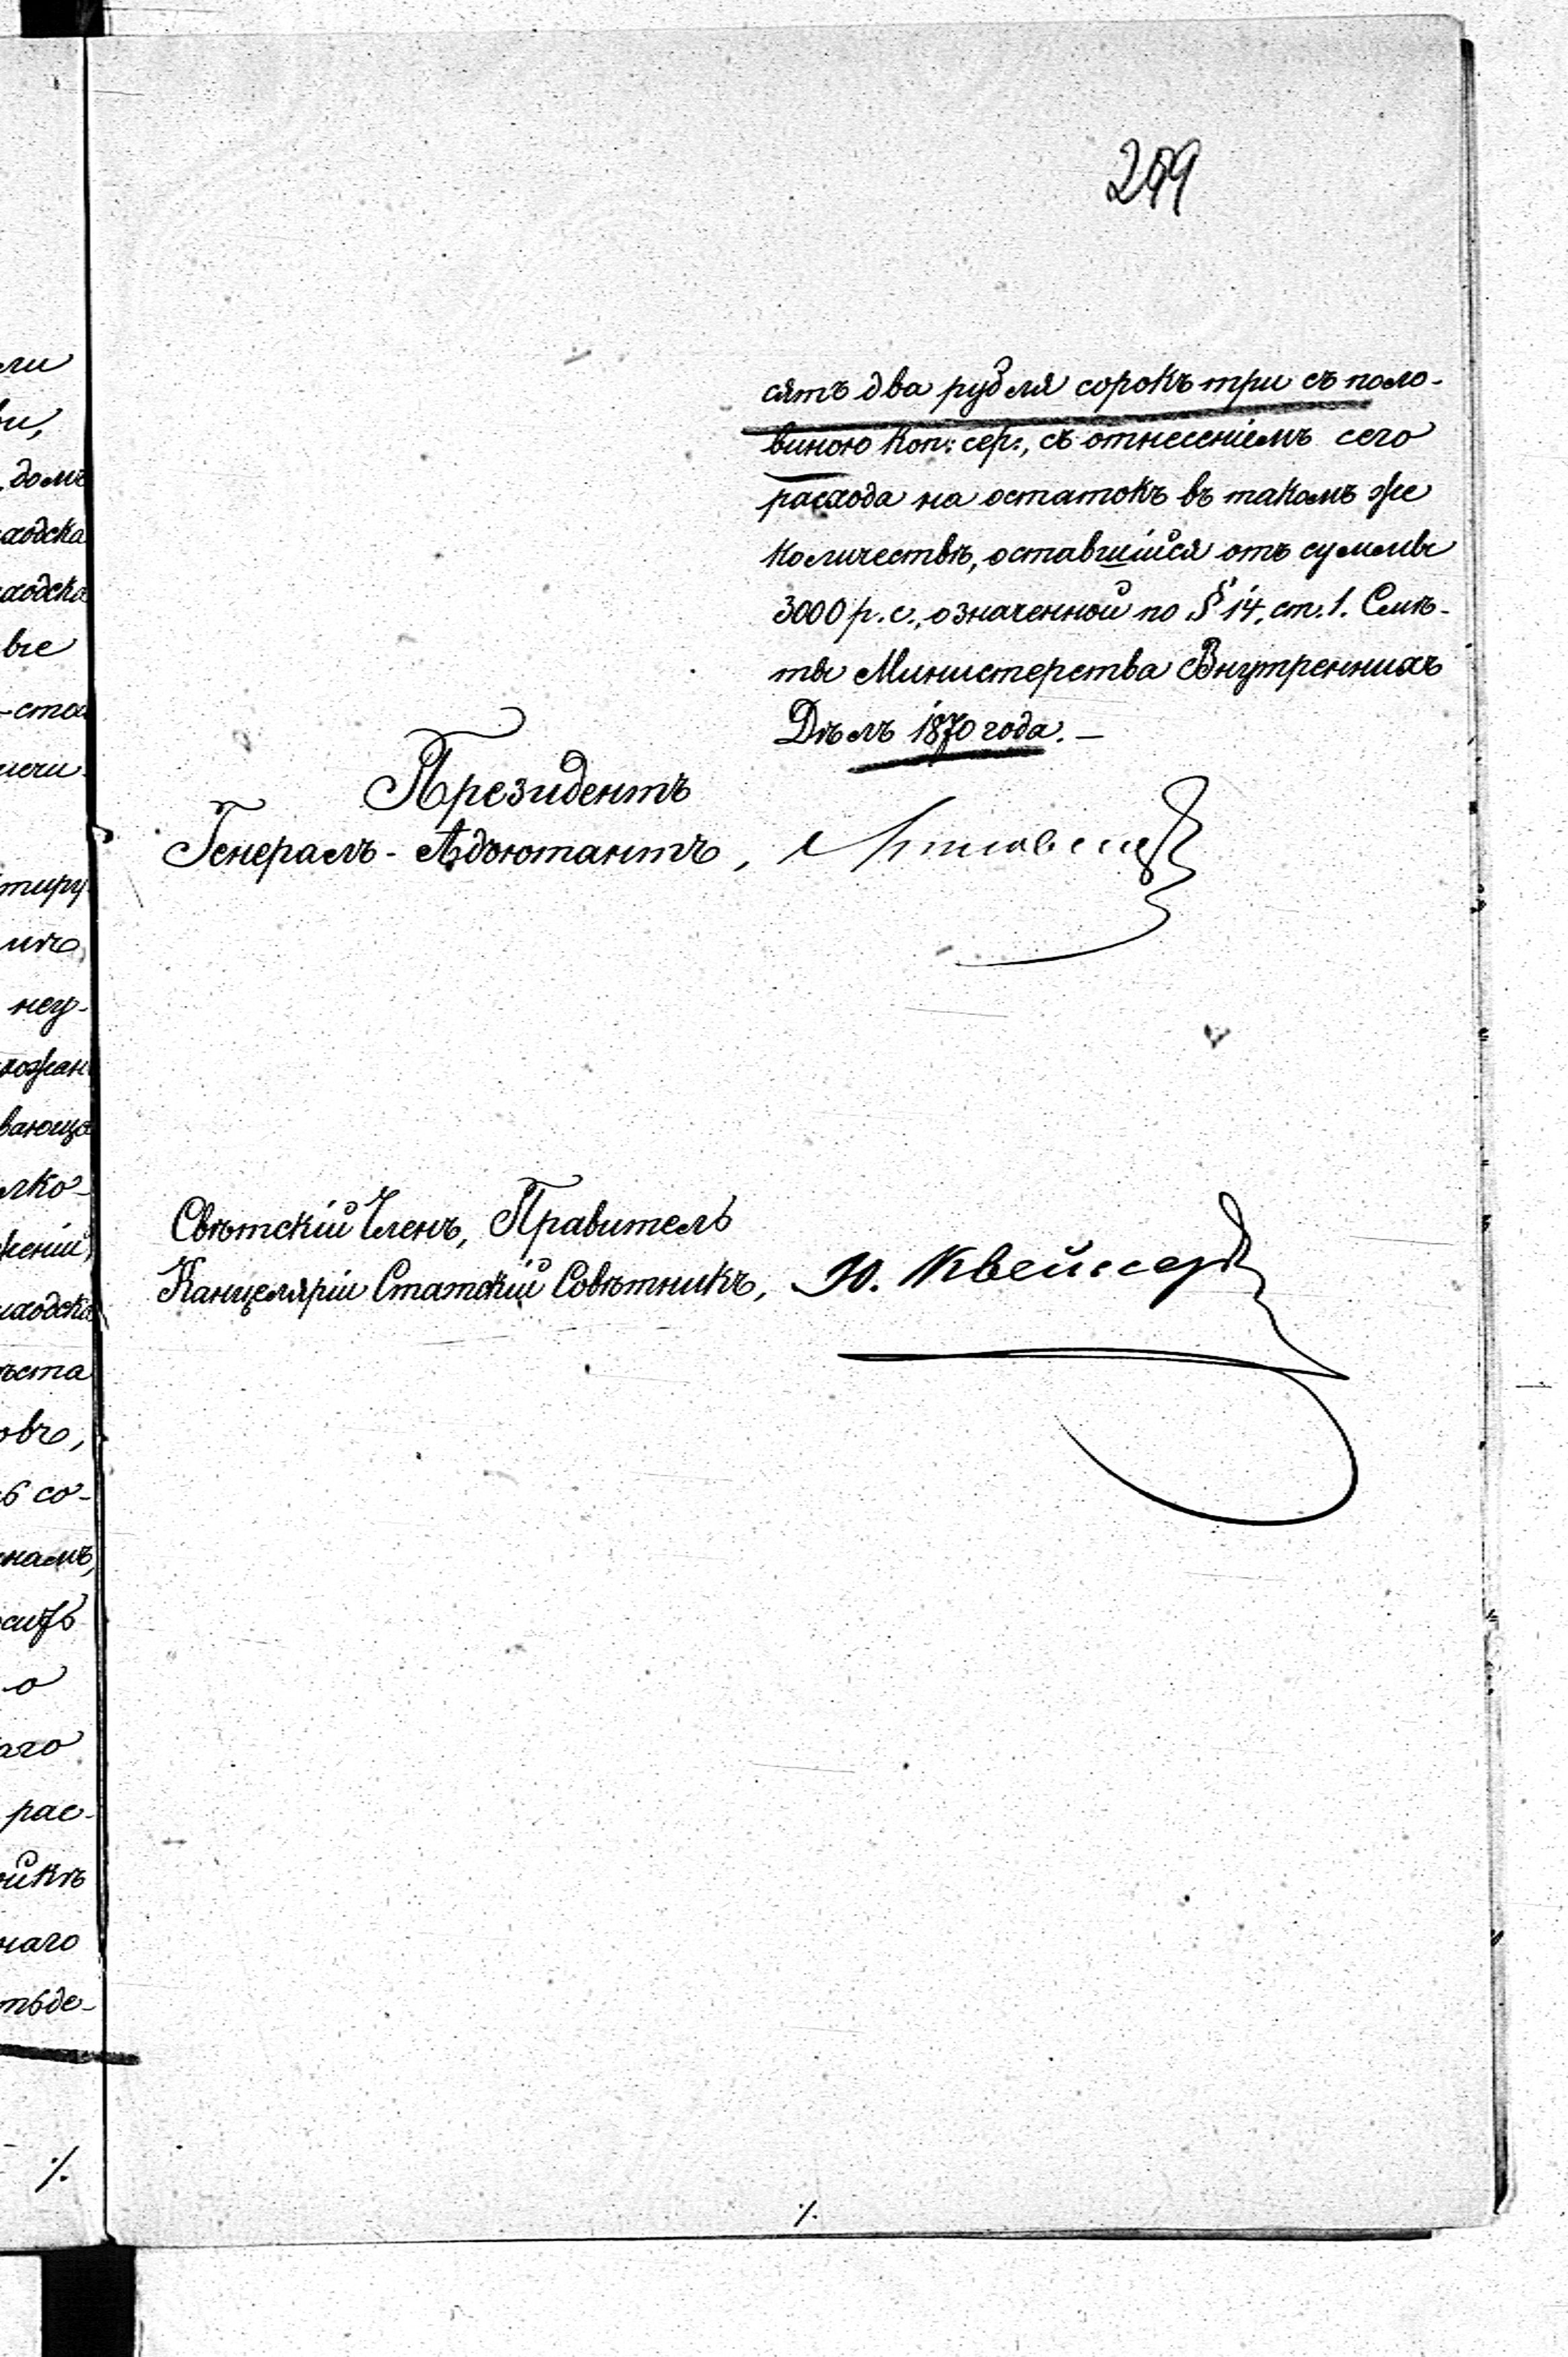 сятъ два рубля сорокъ три съ поло-
виною коп: сер:, съ отнесеніемъ сего
расхода на остатокъ въ такомъ же
количествѣ, оставшійся отъ суммы
3000 р. с., означенной по § 14, ст. 1. Смѣ-
ты Министерства Внутреннихъ
Дѣлъ 1870 года. —
Президентъ
Генералъ-Адъютантъ,
Свѣтскій Членъ, Правитель
Канцеляріи Статскій Совѣтникъ, Ю.